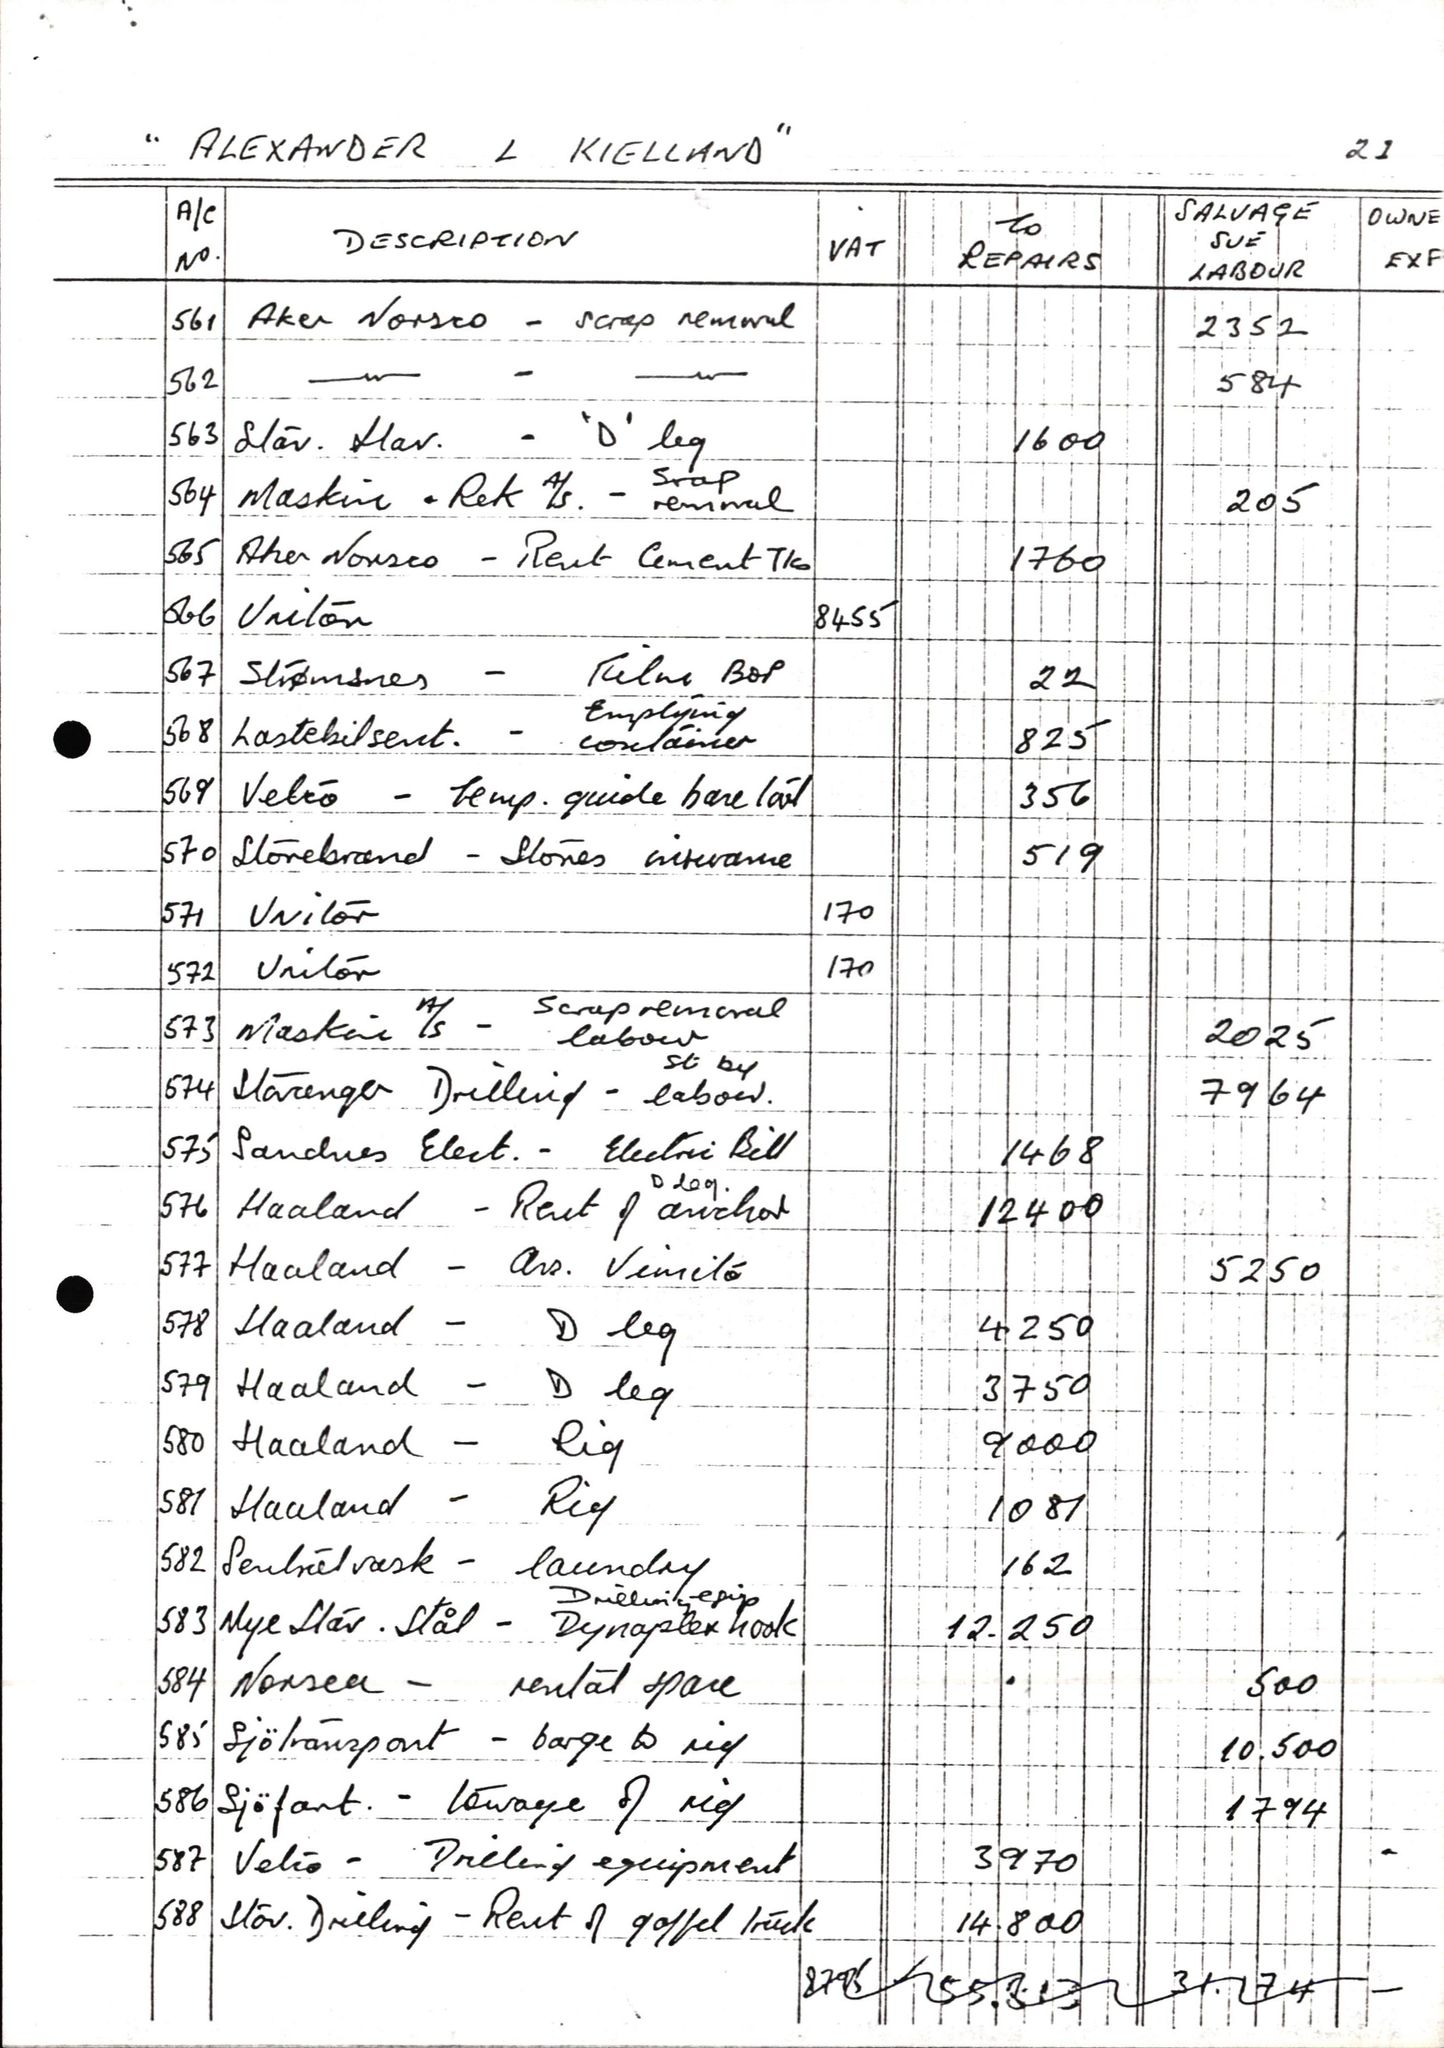 "ALEXANDER L KIELLAND" 21
A/C No. DESCRIPTION VAT To REPAIRS SALVAGE SUE LABOUR OWNE EXP
561 Aker Norsco - scrap removal 2352
562 —〃— - —〃— 584
563 Stav. Hav. - 'D' leg 1600
564 Maskin - Rek A/S. - Scrap removal 205
565 Aker Norsco - Rent Cement Tks 1760
566 Unitor 8455
567 Strømsnes - BOP 22
568 Lastebilsent. - Emptying container 825
569 Vetco - temp. guide base tool 356
570 Storebrand - Stores insurance 519
571 Unitor 170
572 Unitor 170
573 Maskin A/S - Scrap removal labour 2025
574 Stavanger Drilling - St by labour. 7964
575 Sandnes Elect. - Electric Bill 1468
576 Haaland - Rent of D leg. anchor 12400
577 Haaland - 5250
578 Haaland - D leg 4250
579 Haaland - D leg 3750
580 Haaland - Rig 9000
581 Haaland - Rig 1081
582 Sentralvask - laundry 162
583 Nye Stav. Stål - Drilling equip Dynaplex hook 12.250
584 Norsea - rental space 500
585 Sjötransport - barge to rig 10.500
586 Sjöfart. - towage of rig 1794
587 Vetco - Drilling equipment 3970 -
588 Stav. Drilling - Rent of gaffel truck 14.800
8795 55.813 31.174 -